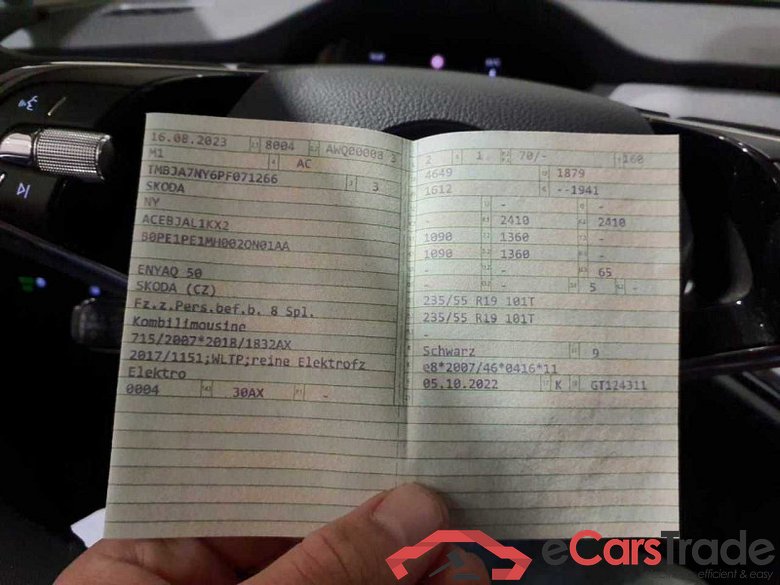 16.08.2023 8004 AWQ00008 3
M1 AC
TMBJA7NY6PF071266 3
SKODA
NY
ACEBJAL1KX2
B0PE1PE1MH002ON01AA
ENYAQ 50
SKODA (CZ)
Fz.z.Pers.bef.b. 8 Spl.
Kombilimousine
715/2007*2018/1832AX
2017/1151;WLTP;reine Elektrofz
Elektro
0004 30AX -
2 1 70/- 160
4649 1879
1612 --1941
- -
- 2410 2410
1090 1360 -
1090 1360 -
- - 65
- - 5 -
235/55 R19 101T
235/55 R19 101T
-
Schwarz 9
e8*2007/46*0416*11
05.10.2022 K GT124311
eCarsTrade
efficient & easy